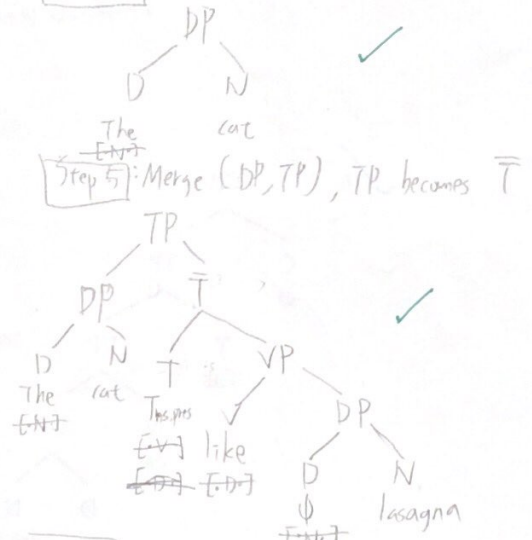 DP
D N
The cat
[·N·]
Step 5: Merge (DP, TP), TP becomes T̅
TP
DP T̅
D N T VP
The cat Tns:pres V DP
[·N·] [·V·] like D N
[·D·] [·D·] ∅ lasagna
[·N·]